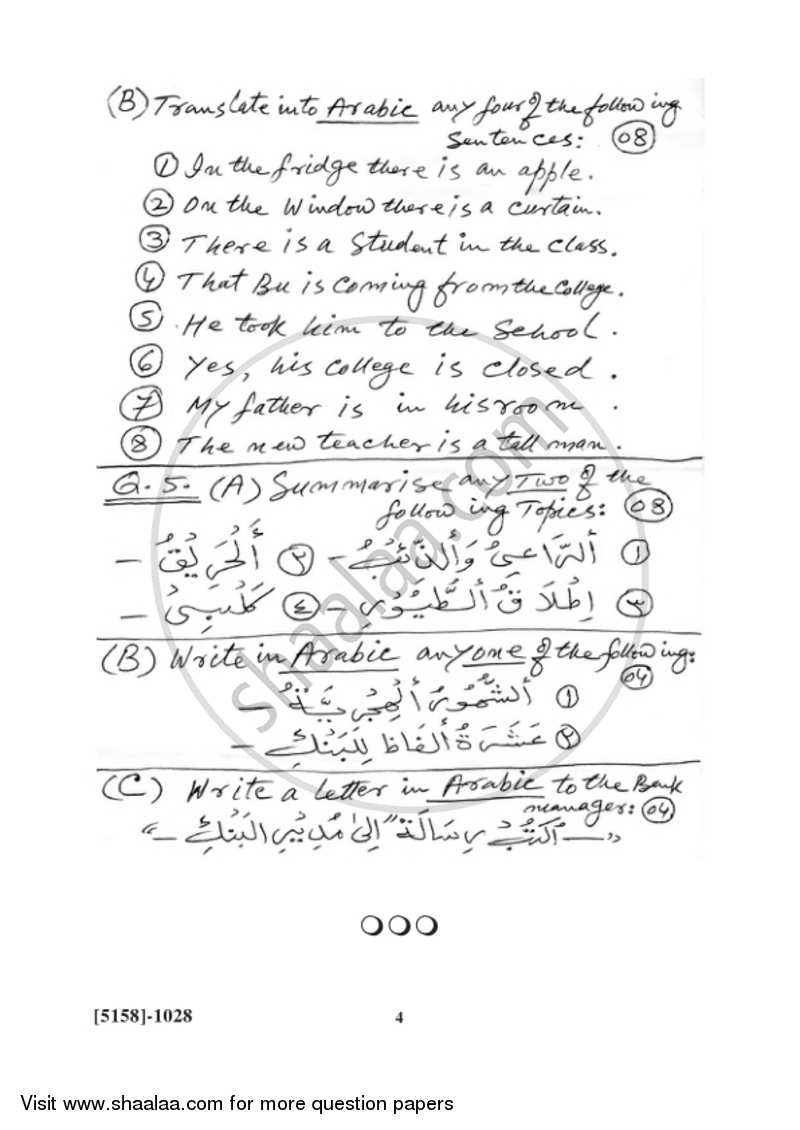 (B) Translate into Arabic any four of the following
Sentences: (08)
① In the fridge there is an apple.
② On the Window there is a curtain.
③ There is a Student in the class.
④ That Bu is coming from the College.
⑤ He took him to the School.
⑥ Yes, his college is closed.
⑦ My father is in his room.
⑧ The new teacher is a tall man.
Q.5. (A) Summarise any Two of the
following Topics: (08)
① أَلرَّاعِىُ وَألذِّئبُ - ② أَلْحَرِيْقُ -
③ إِطْلَاقُ ألطُّيُوْرِ - ④ كَلْبِىْ -
(B) Write in Arabic any one of the following:
(04)
① ألشُّهُوْرُ ألْهِجْرِيَّةُ -
② عَشَرَةُ ألْفَاظ لِلْبَنْكِ -
(C) Write a letter in Arabic to the Bank
manager: (04)
"- أُكْتُبْ رِسَالَةً إِلىٰ مُدِيْرِ الْبَنْكِ -"
[5158]-1028 4
Visit www.shaalaa.com for more question papers
shaalaa.com